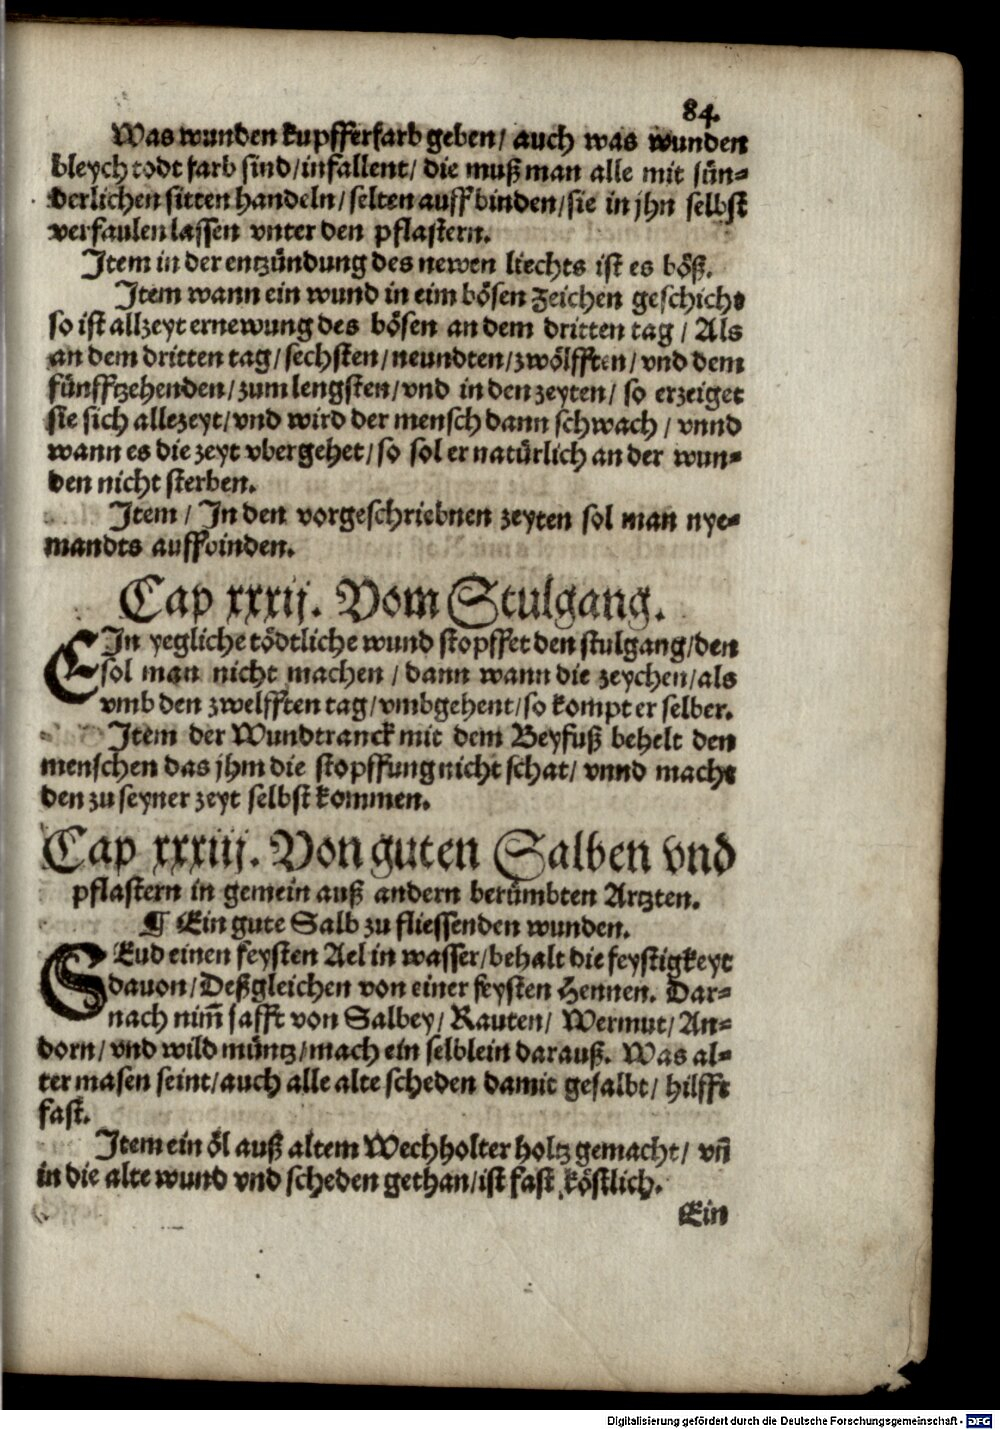 84.
Was wunden kupfferfarb geben/ auch was wunden
bleych todt farb sind/infallent/ die muß man alle mit sün-
derlichen sitten handeln/selten auff binden/sie in jhn selbst
verfaulen lassen vnter den pflastern.
Item in der entzündung des newen liechts ist es böß.
Item wann ein wund in eim bösen Zeichen geschicht
so ist allzeyt ernewung des bösen an dem dritten tag/ Als
an dem dritten tag/sechsten/neundten/zwölfften/vnd dem
fünfftzehenden/zum lengsten/vnd in den zeyten/ so erzeiget
sie sich allezeyt/vnd wird der mensch dann schwach/ vnnd
wann es die zeyt vbergehet/so sol er natürlich an der wun-
den nicht sterben.
Item/ In den vorgeschriebnen zeyten sol man nye-
mandts auffbinden.
Cap xxxij. Vom Stulgang.
EIn yegliche tödtliche wund stopffet den stulgang/den
sol man nicht machen/ dann wann die zeychen/als
vmb den zwelfften tag/vmbgehent/so kompt er selber.
Item der Wundtranck mit dem Beyfuß behelt den
menschen das jhm die stopffung nicht schat/ vnnd macht
den zu seyner zeyt selbst kommen.
Cap xxxiij. Von guten Salben vnd
pflastern in gemein auß andern berümbten Artzten.
¶ Ein gute Salb zu fliessenden wunden.
SEud einen feysten Ael in wasser/behalt die feystigkeyt
dauon/Deßgleichen von einer feysten Hennen. Dar-
nach nim̄ safft von Salbey/ Rauten/ Wermut/ An-
dorn/vnd wild müntz/mach ein selblein darauß. Was al-
ter masen seint/auch alle alte scheden damit gesalbt/ hilfft
fast.
Item ein öl auß altem Wechholter holtz gemacht/ vn̄
in die alte wund vnd scheden gethan/ist fast köstlich.
Ein
Digitalisierung gefördert durch die Deutsche Forschungsgemeinschaft - DFG